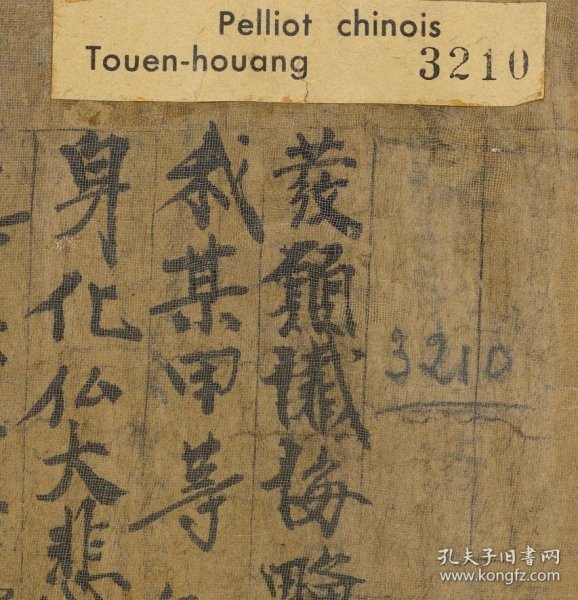 Pelliot chinois
Touen-houang 3210
3210
發願懺悔
我某甲等
身化仏大悲
孔夫子旧书网
www.kongfz.com